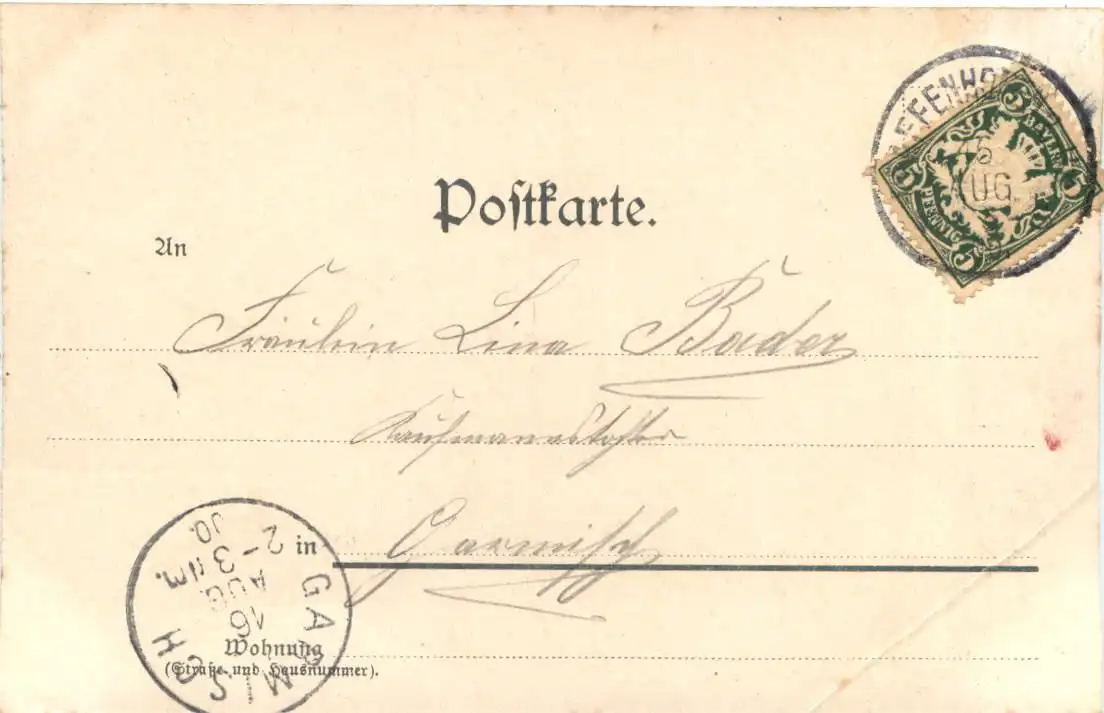 Postkarte.
5 5 5 5
BAYERN
PFENNIG
AUG.
An
Fräulein Lina Bader
Kaufmannstochter
in Garmisch
Wohnung
(Straße und Hausnummer).
GARMISCH
16
AUG.
2-3 NM.
00.